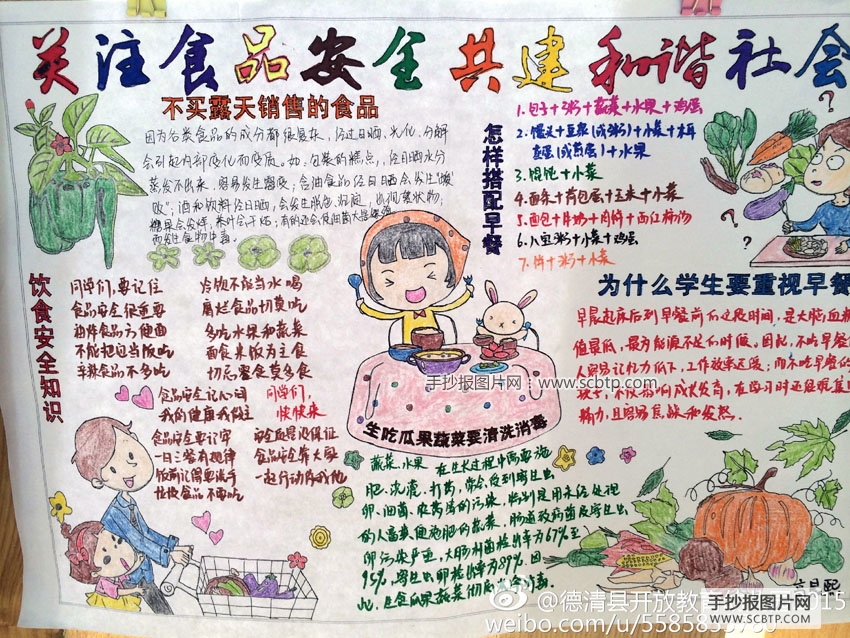 关注食品安全 共建和谐社会
不买露天销售的食品
因为各类食品的成分都很复杂,经过日晒、光化、分解
会引起内部变化而变质。如:包装的糕点,经日晒水分
蒸发不出来,容易发生霉变;含油食品经日晒会发生"酸
败";酒和饮料经日晒,会发生脱色、沉淀,出现絮状物;
而发生食物中毒。
怎样搭配早餐
1.包子+粥+蔬菜+水果+鸡蛋
2.馒头+豆浆(或粥)+小菜+
蛋(或煎蛋)+水果
3.馄饨+小菜
4.面条+荷包蛋+玉米+小菜
5.面包+牛奶+肉饼+西红柿
6.八宝粥+小菜+鸡蛋
7.饼+粥+小菜
为什么学生要重视早餐
早晨起床后到早餐前的这段时间,是大脑血糖
值最低,最
人容易记忆力低下,工作效率迟缓;而不吃早餐的
孩子,不仅影响成长发育,在学习时还很难集
精力,且容易焦躁和发怒。
饮食安全知识
同学们,要记住
食品安全很重要
油炸食品方便面
不能把它当饭吃
辛辣食品不多吃
冷饮不能当水喝
腐烂食品切莫吃
多吃水果和蔬菜
面食米饭为主食
切忌零食莫多食
食品安全记心间
我的健康我做主
同学们,
快快来
食品安全要记牢
一日三餐有规律
饭前记得要洗手
垃圾食品不要吃
安全血是没保证
食品安全靠大家
一起行动
生吃瓜果蔬菜要清洗消毒
蔬菜、水果在生长过程中需要施
肥、浇灌、打药,常会受到寄生虫
卵、细菌、农药等的污染,特别是用未经处理
的人畜粪便施肥的蔬菜,肠道致病菌及寄生虫
卵污染严重,大肠杆菌检出率为67%至
95%,寄生虫卵检出率为89%。因
此,生食瓜果蔬菜彻底
手抄报图片网:www.scbtp.com
@德清县开放教育
2015
weibo.com/u/5585835
手抄报图片网
WWW.SCBTP.COM